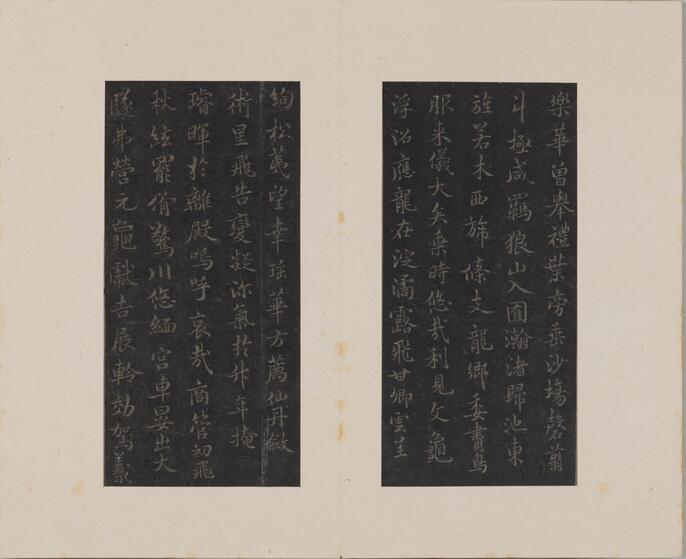 樂華曾舉禮葉旁垂沙場磬翦
斗極咸羈狼山入囿瀚渚歸池東
旌若木西旆條支龍鄉委賮鳥
服来儀大矣乘時悠哉利見文龜
浮沼應龍在淀潏露飛甘卿雲呈
絢松蕘望幸瑤華方薦仙丹斂
術星飛告變凝沴氣於升年掩
璿暉於離殿嗚呼哀哉商管初飛
秋絃罷脩驚川悠緬宮車晏出大
隧弗營元龜獻吉展軨効駕羲